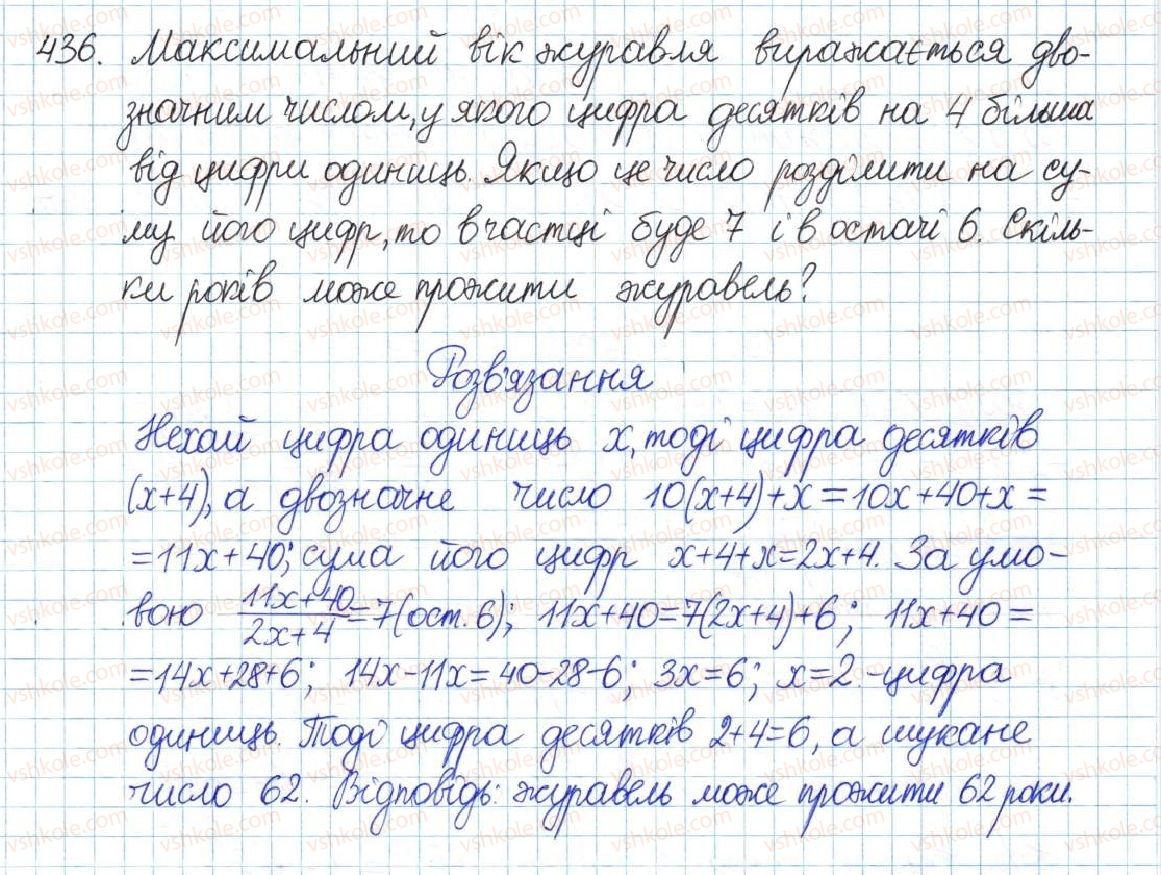 436. Максимальний вік журавля виражається дво-
значним числом, у якого цифра десятків на 4 більша
від цифри одиниць. Якщо це число розділити на су-
му його цифр, то в частці буде 7 і в остачі 6. Скіль-
ки років може прожити журавель?
Розв'язання
Нехай цифра одиниць x, тоді цифра десятків
(x+4), а двозначне число 10(x+4)+x=10x+40+x=
=11x+40; сума його цифр x+4+x=2x+4. За умо-
вою \frac{11x+40}{2x+4}=7(ост. 6); 11x+40=7(2x+4)+6; 11x+40=
=14x+28+6; 14x-11x=40-28-6; 3x=6; x=2.-цифра
одиниць. Тоді цифра десятків 2+4=6, а шукане
число 62. Відповідь: журавель може прожити 62 роки.